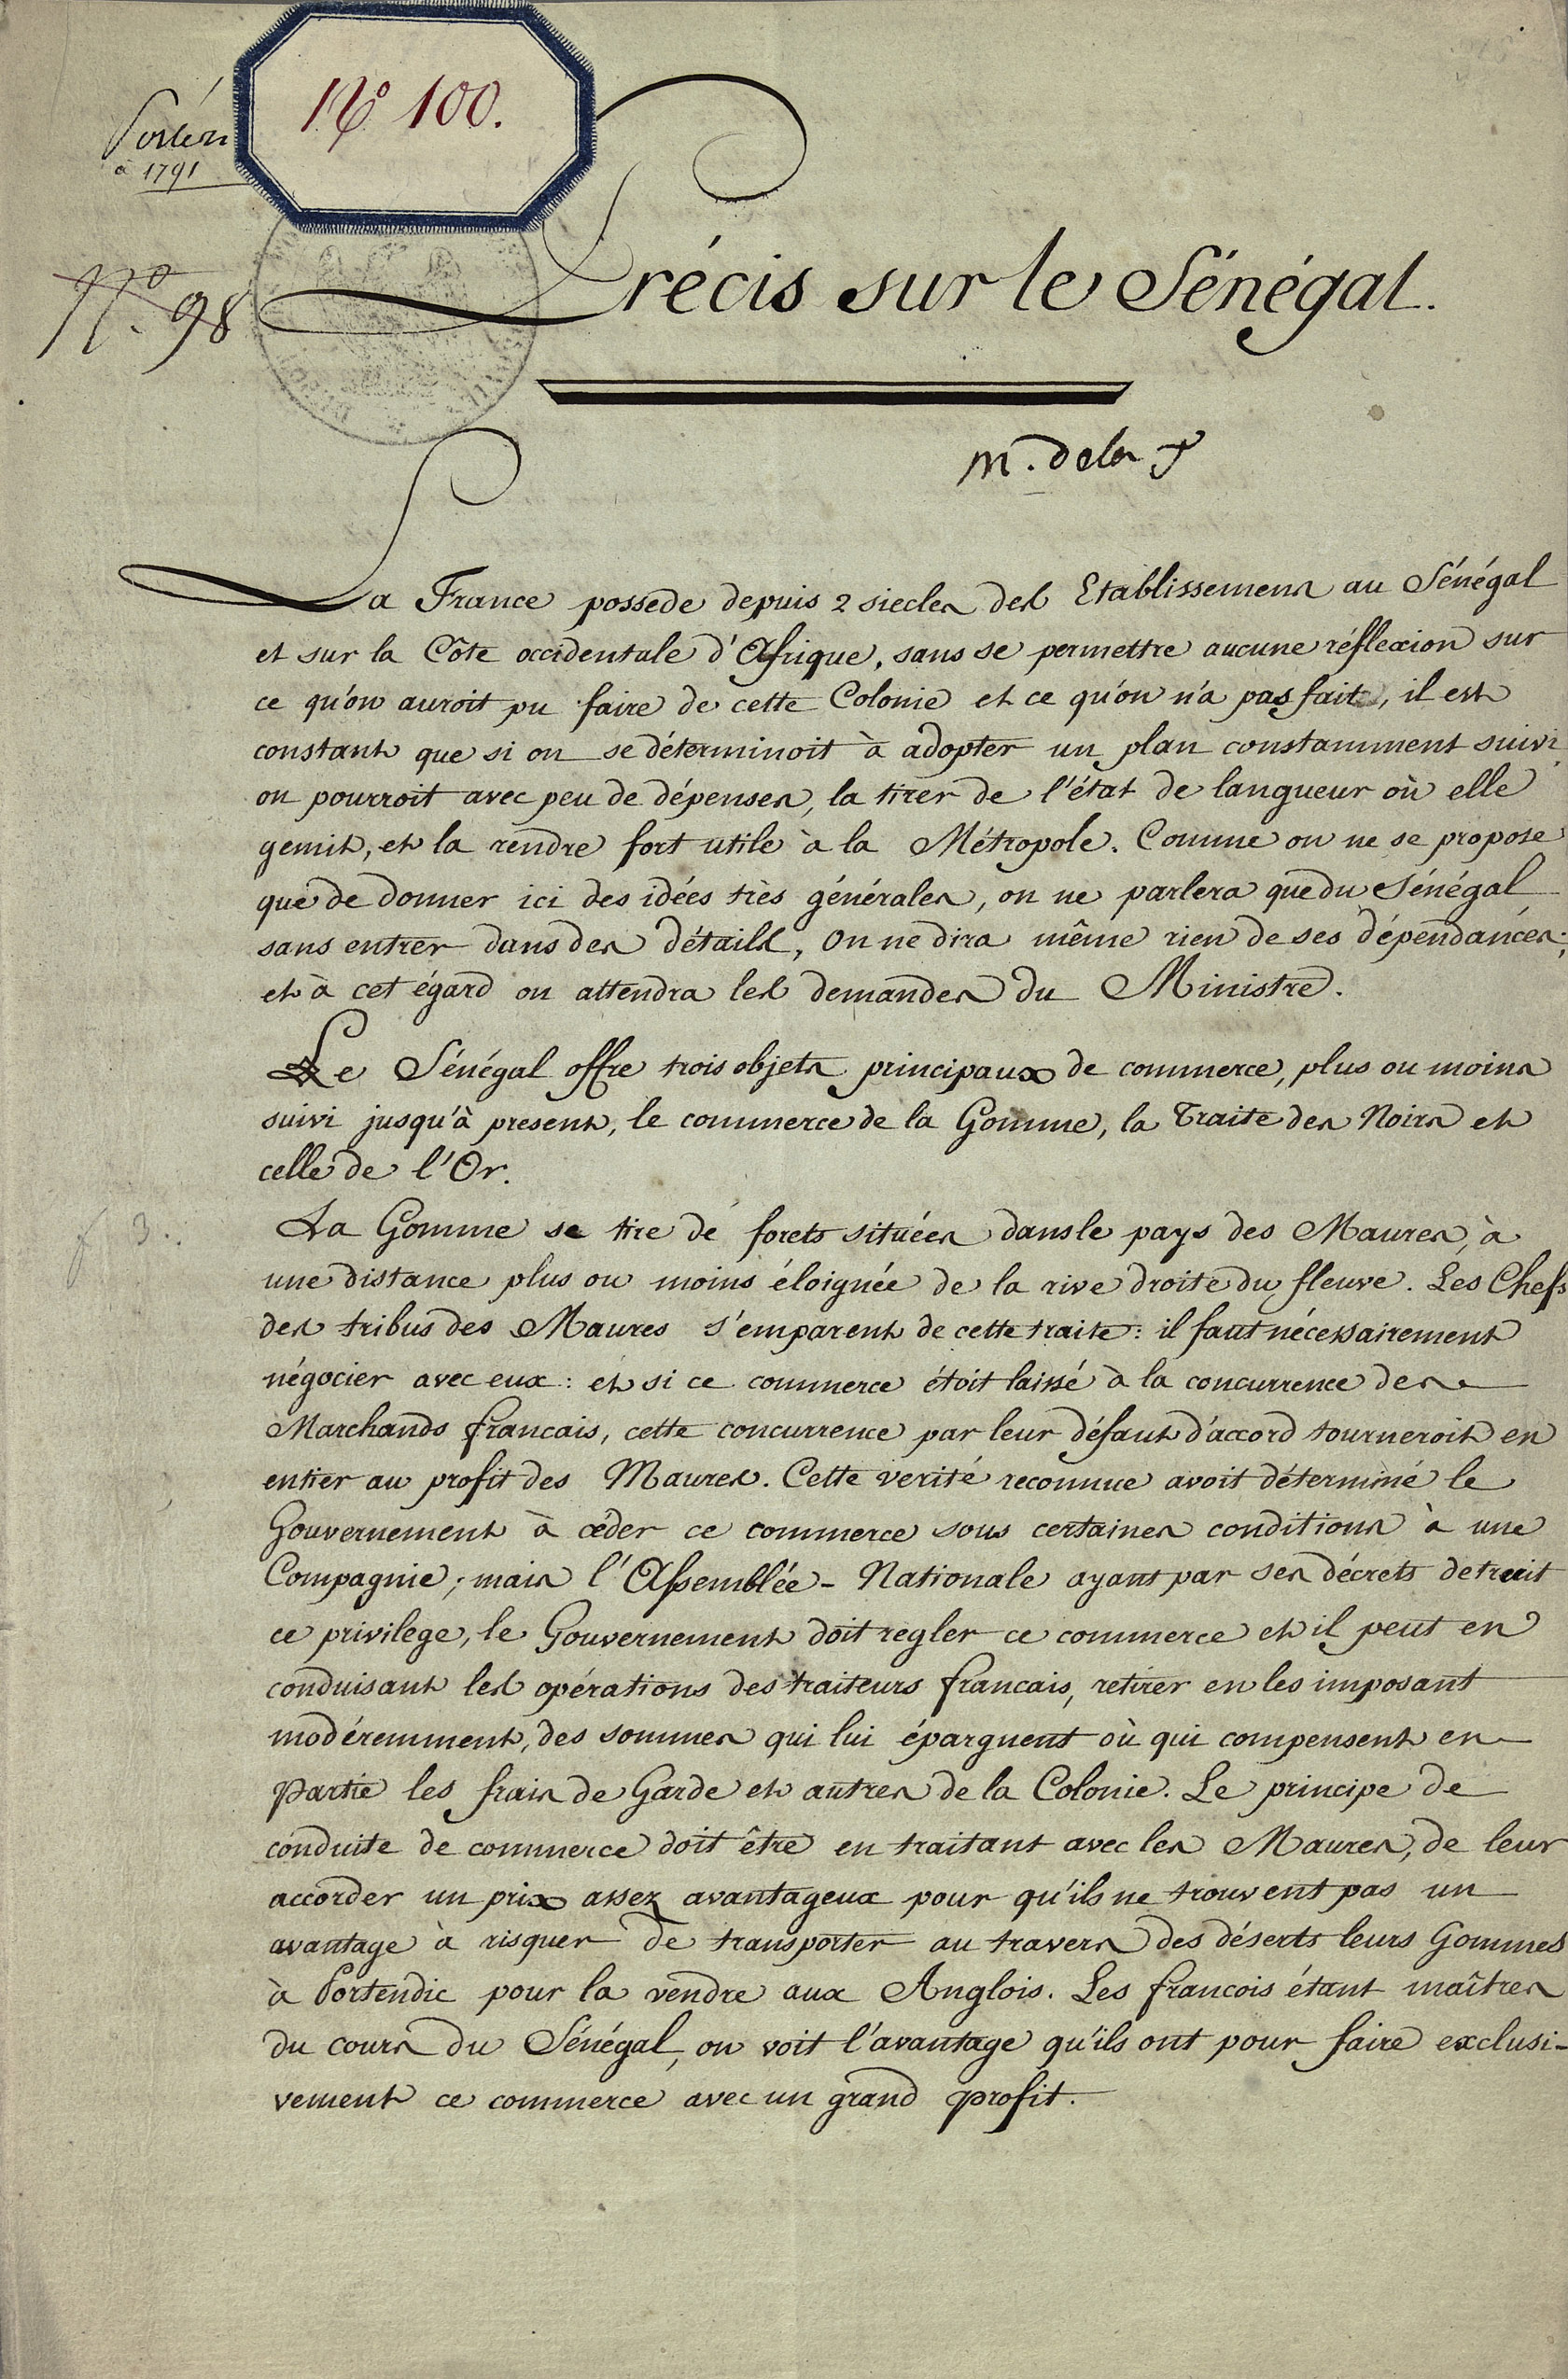 Nº 100.
à 1791
Nº. 98
Précis sur le Sénégal.
M. dela
La France possede depuis 2 siecles des Etablissemens au Sénégal
et sur la Côte occidentale d'Afrique, sans se permettre aucune réflexion sur
ce qu'on auroit pu faire de cette Colonie et ce qu'on n'a pas fait, il est
constant que si on se déterminoit à adopter un plan constamment suivi
on pourroit avec peu de dépenses, la tirer de l'état de langueur où elle
gemit, et la rendre fort utile à la Métropole. Comme on ne se propose
que de donner ici des idées très générales, on ne parlera que du Sénégal
sans entrer dans des détails, On ne dira même rien de ses dépendances;
et à cet égard on attendra les demandes du Ministre.
Le Sénégal offre trois objets principaux de commerce, plus ou moins
suivi jusqu'à present, le commerce de la Gomme, la Traite des Noirs et
celle de l'Or.
La Gomme se tire de forets situées dans le pays des Maures, à
une distance plus ou moins éloignée de la rive droite du fleuve. Les Chefs
des tribus des Maures s'emparent de cette traite: il faut nécessairement
négocier avec eux: et si ce commerce étoit laissé à la concurrence des
Marchands francais, cette concurrence par leur défaut d'accord tourneroit en
entier au profit des Maures. Cette verité reconnue avoit déterminé le
Gouvernement à céder ce commerce sous certaines conditions à une
Compagnie; mais l'Assemblée-Nationale ayant par ses décrets detruit
ce privilege, le Gouvernement doit regler ce commerce et il peut en
conduisant les opérations des traiteurs francais, retirer en les imposant
modéremment, des sommes qui lui épargnent où qui compensent en
Partie les frais de Garde et autres de la Colonie. Le principe de
conduite de commerce doit être en traitant avec les Maures, de leur
accorder un prix assez avantageux pour qu'ils ne trouvent pas un
avantage à risquer de transporter au travers des déserts leurs Gommes
à Portendic pour la vendre aux Anglois. Les francois étant maîtres
du cours du Sénégal, on voit l'avantage qu'ils ont pour faire exclusi-
vement ce commerce avec un grand profit.